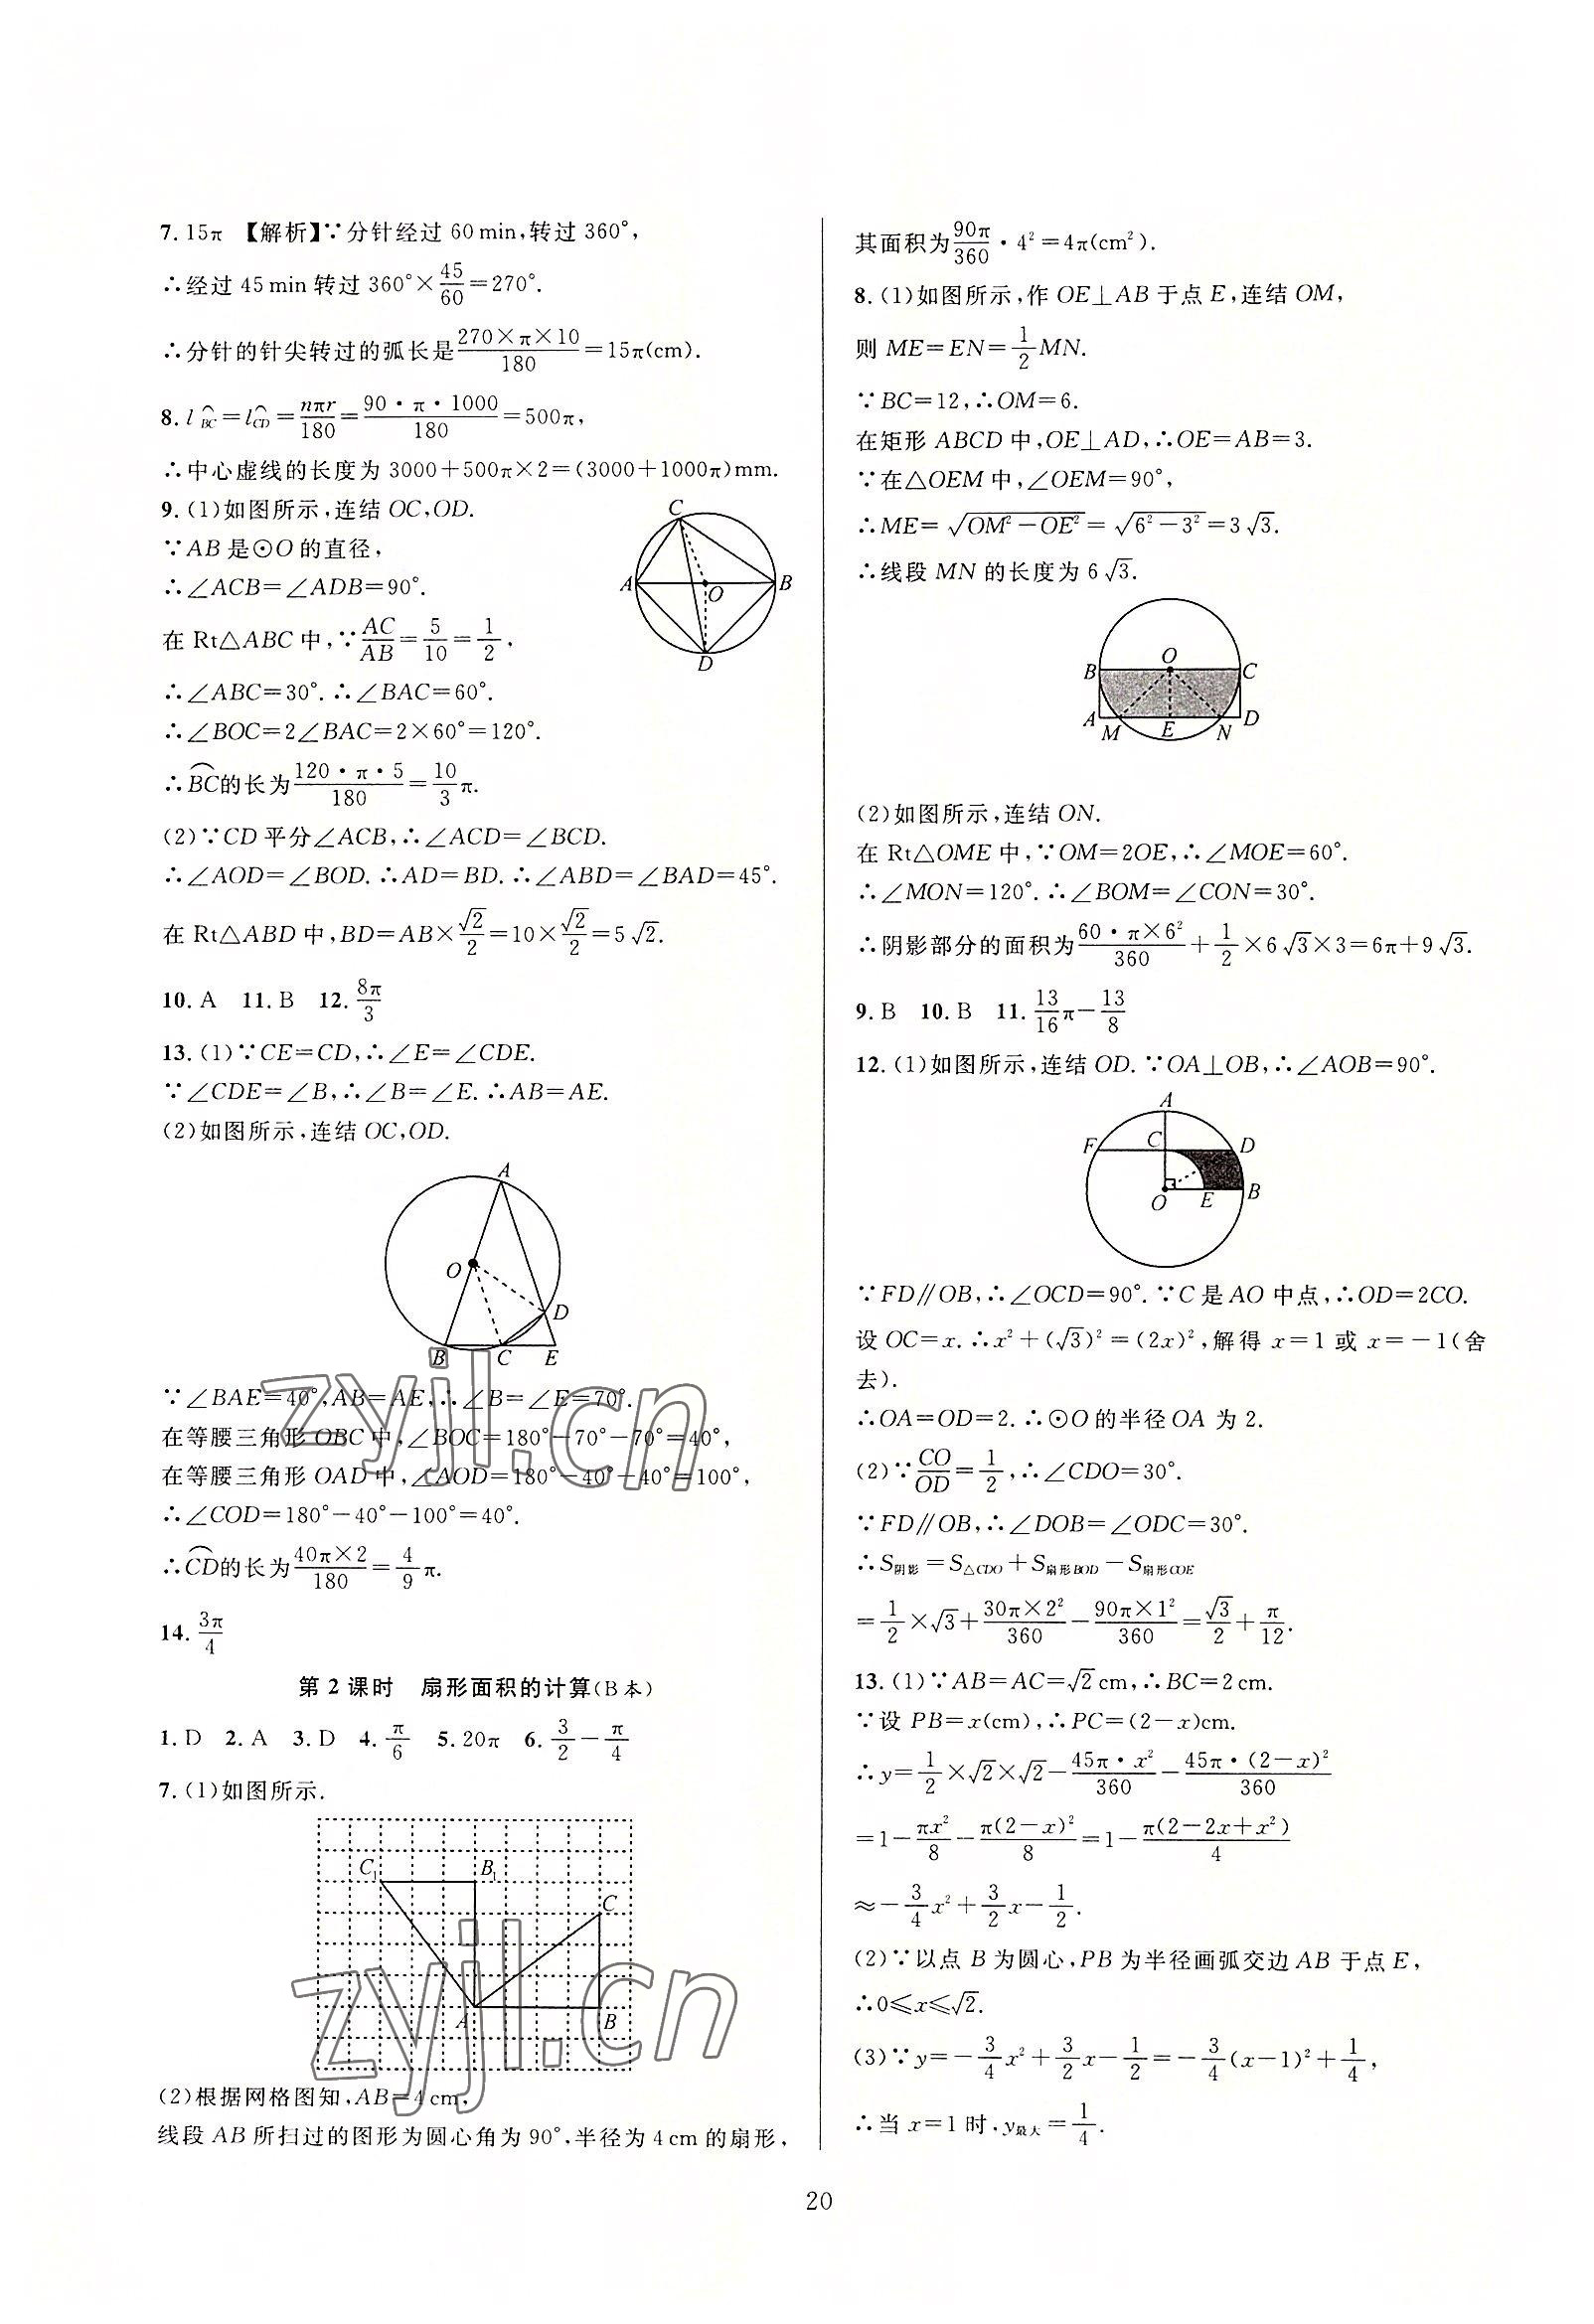 7.15π 【解析】∵分针经过60 min,转过360°,
∴经过45 min转过360°×45/60=270°.
∴分针的针尖转过的弧长是(270×π×10)/180=15π(cm).
8. l⌒BC=l⌒CD=nπr/180=(90·π·1000)/180=500π,
∴中心虚线的长度为3000+500π×2=(3000+1000π)mm.
9.(1)如图所示,连结OC,OD.
∵AB是⊙O的直径,
∴∠ACB=∠ADB=90°.
在Rt△ABC中,∵AC/AB=5/10=1/2,
∴∠ABC=30°.∴∠BAC=60°.
∴∠BOC=2∠BAC=2×60°=120°.
∴⌒BC的长为(120·π·5)/180=10/3π.
C
A
B
O
D
(2)∵CD平分∠ACB,∴∠ACD=∠BCD.
∴∠AOD=∠BOD.∴AD=BD.∴∠ABD=∠BAD=45°.
在Rt△ABD中,BD=AB×√2/2=10×√2/2=5√2.
10.A 11.B 12.8π/3
13.(1)∵CE=CD,∴∠E=∠CDE.
∵∠CDE=∠B,∴∠B=∠E.∴AB=AE.
(2)如图所示,连结OC,OD.
A
O
D
B C E
∵∠BAE=40°,AB=AE,∴∠B=∠E=70°.
在等腰三角形OBC中,∠BOC=180°-70°-70°=40°,
在等腰三角形OAD中,∠AOD=180°-40°-40°=100°,
∴∠COD=180°-40°-100°=40°.
∴⌒CD的长为(40π×2)/180=4/9π.
14.3π/4
第2课时 扇形面积的计算(B本)
1.D 2.A 3.D 4.π/6 5.20π 6.3/2-π/4
7.(1)如图所示.
C₁ B₁
C
A B
(2)根据网格图知,AB=4 cm,
线段AB所扫过的图形为圆心角为90°,半径为4 cm的扇形,
其面积为90π/360·4²=4π(cm²).
8.(1)如图所示,作OE⊥AB于点E,连结OM,
则ME=EN=1/2MN.
∵BC=12,∴OM=6.
在矩形ABCD中,OE⊥AD,∴OE=AB=3.
∵在△OEM中,∠OEM=90°,
∴ME=√(OM²-OE²)=√(6²-3²)=3√3.
∴线段MN的长度为6√3.
O
B C
A M E N D
(2)如图所示,连结ON.
在Rt△OME中,∵OM=2OE,∴∠MOE=60°.
∴∠MON=120°.∴∠BOM=∠CON=30°.
∴阴影部分的面积为(60·π×6²)/360+1/2×6√3×3=6π+9√3.
9.B 10.B 11.13/16π-13/8
12.(1)如图所示,连结OD.∵OA⊥OB,∴∠AOB=90°.
A
F C D
O E B
∵FD∥OB,∴∠OCD=90°.∵C是AO中点,∴OD=2CO.
设OC=x.∴x²+(√3)²=(2x)²,解得x=1或x=-1(舍
去).
∴OA=OD=2.∴⊙O的半径OA为2.
(2)∵CO/OD=1/2,∴∠CDO=30°.
∵FD∥OB,∴∠DOB=∠ODC=30°.
∴S阴影=S△CDO+S扇形BOD-S扇形COE
=1/2×√3+(30π×2²)/360-(90π×1²)/360=√3/2+π/12.
13.(1)∵AB=AC=√2 cm,∴BC=2 cm.
∵设PB=x(cm),∴PC=(2-x)cm.
∴y=1/2×√2×√2-(45π·x²)/360-(45π·(2-x)²)/360
=1-πx²/8-π(2-x)²/8=1-π(2-2x+x²)/4
≈-3/4x²+3/2x-1/2.
(2)∵以点B为圆心,PB为半径画弧交边AB于点E,
∴0≤x≤√2.
(3)∵y=-3/4x²+3/2x-1/2=-3/4(x-1)²+1/4,
∴当x=1时,y最大=1/4.
20
zyjl.cn
zyjl.cn